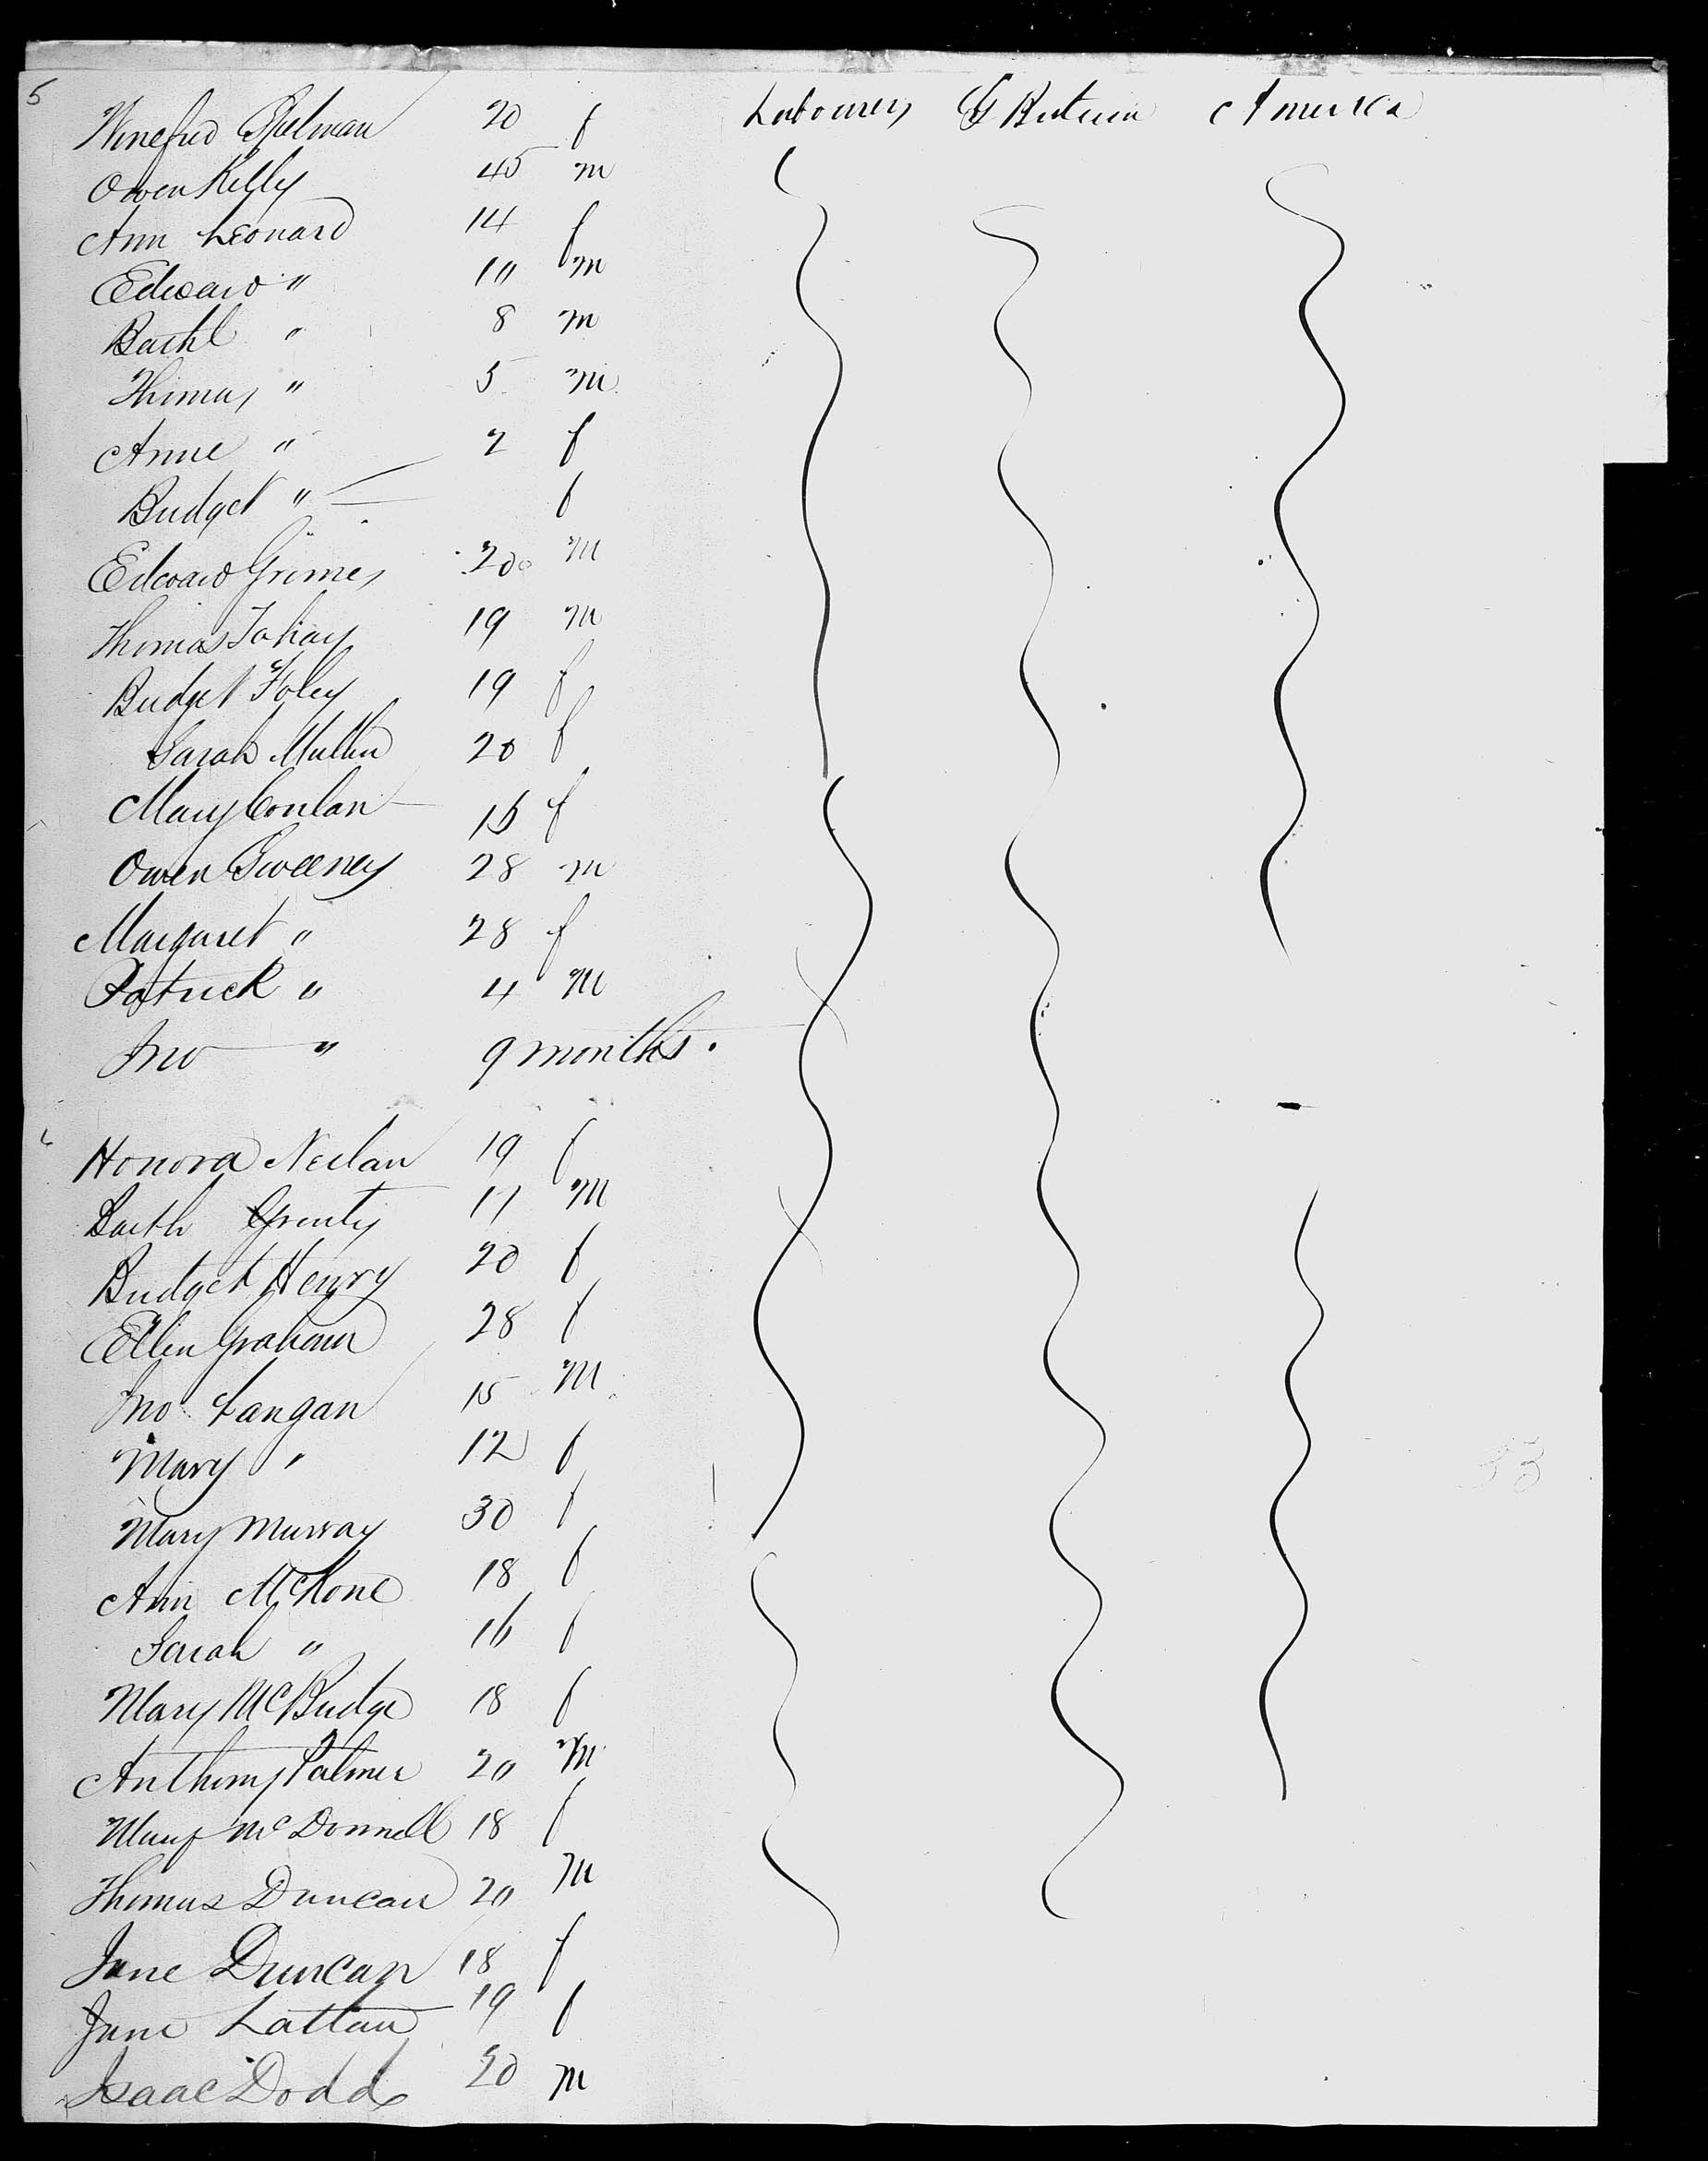 5
Winefred Spelman 20 f Labourers G Britain America
Owen Kelly 45 m
Ann Leonard 14 f
Edward " 10 m
Barthl " 8 m
Thomas " 5 m
Anne " 2 f
Bridget " f
Edward Grimes 20 m
Thomas Fahay 19 m
Bridget Foley 19 f
Sarah Mullin 20 f
Mary Conlan 16 f
Owen Sweeney 28 m
Margaret " 28 f
Patrick " 4 m
Jno " 9 months.
Honora Neilan 19 f
Barth 17 m
Bridget Henry 20 f
Ellen Graham 28 f
Jno Langan 15 m
Mary " 12 f
Mary Murray 30 f
Ann McKone 18 f
Sarah " 16 f
Mary McBridge 18 f
Anthony Palmer 20 m
Mary McDonnell 18 f
Thomas Duncan 20 m
Jane Duncan 18 f
Jane Lattau 19 f
Isaac Dodds 20 m
33